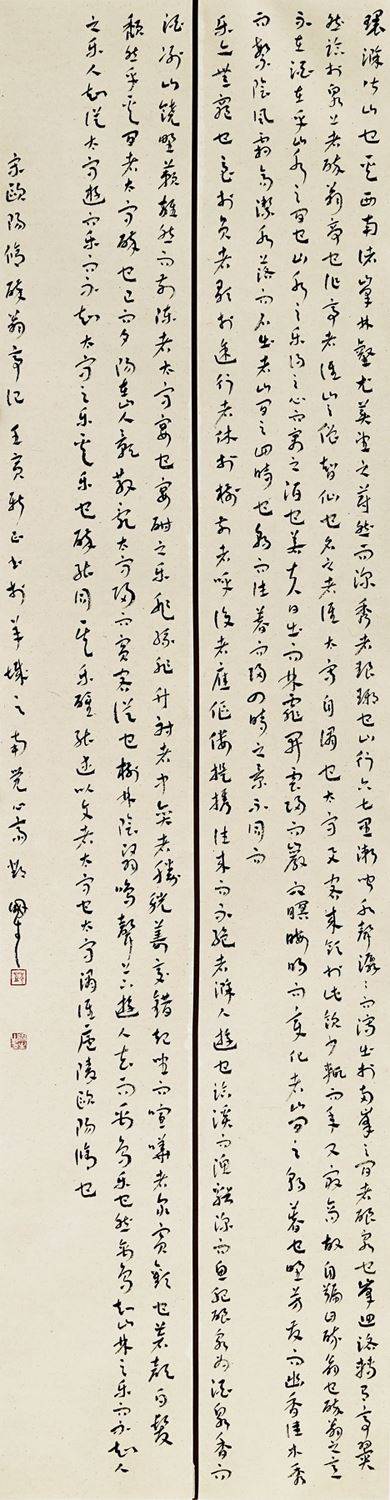 環滁皆山也其西南諸峯林壑尤美望之蔚然而深秀者琅琊也山行六七里漸聞水聲潺潺而瀉出於兩峯之間者釀泉也峯迴路轉有亭翼
然臨於泉上者醉翁亭也作亭者誰山之僧智仙也名之者誰太守自謂也太守與客來飲於此飲少輒而年又最高故自號曰醉翁也醉翁之意
不在酒在乎山水之間也山水之樂得之心而寓之酒也若夫日出而林霏開雲歸而巖穴暝晦明而變化者山間之朝暮也野芳發而幽香佳木秀
而繁陰風霜高潔水落而石出者山間之四時也朝而往暮而歸四時之景不同而
樂亦無窮也至於負者歌於途行者休於樹前者呼後者應傴僂提攜往來而不絕者滁人遊也臨溪而漁谿深而魚肥釀泉為酒泉香而
酒冽山餚野蔌雜然而前陳者太守宴也宴酣之樂非絲非竹射者中弈者勝觥籌交錯起坐而喧嘩者衆賓歡也蒼顏白髮
頹然乎其間者太守醉也已而夕陽在山人影散亂太守歸而賓客從也樹林陰翳鳴聲上下遊人去而禽鳥樂也然禽鳥知山林之樂而不知人
之樂人知從太守遊而樂而不知太守之樂其樂也醉能同其樂醒能述以文者太守也太守謂誰廬陵歐陽脩也
宋歐陽脩醉翁亭記 壬寅新正書於羊城之南覺心齋